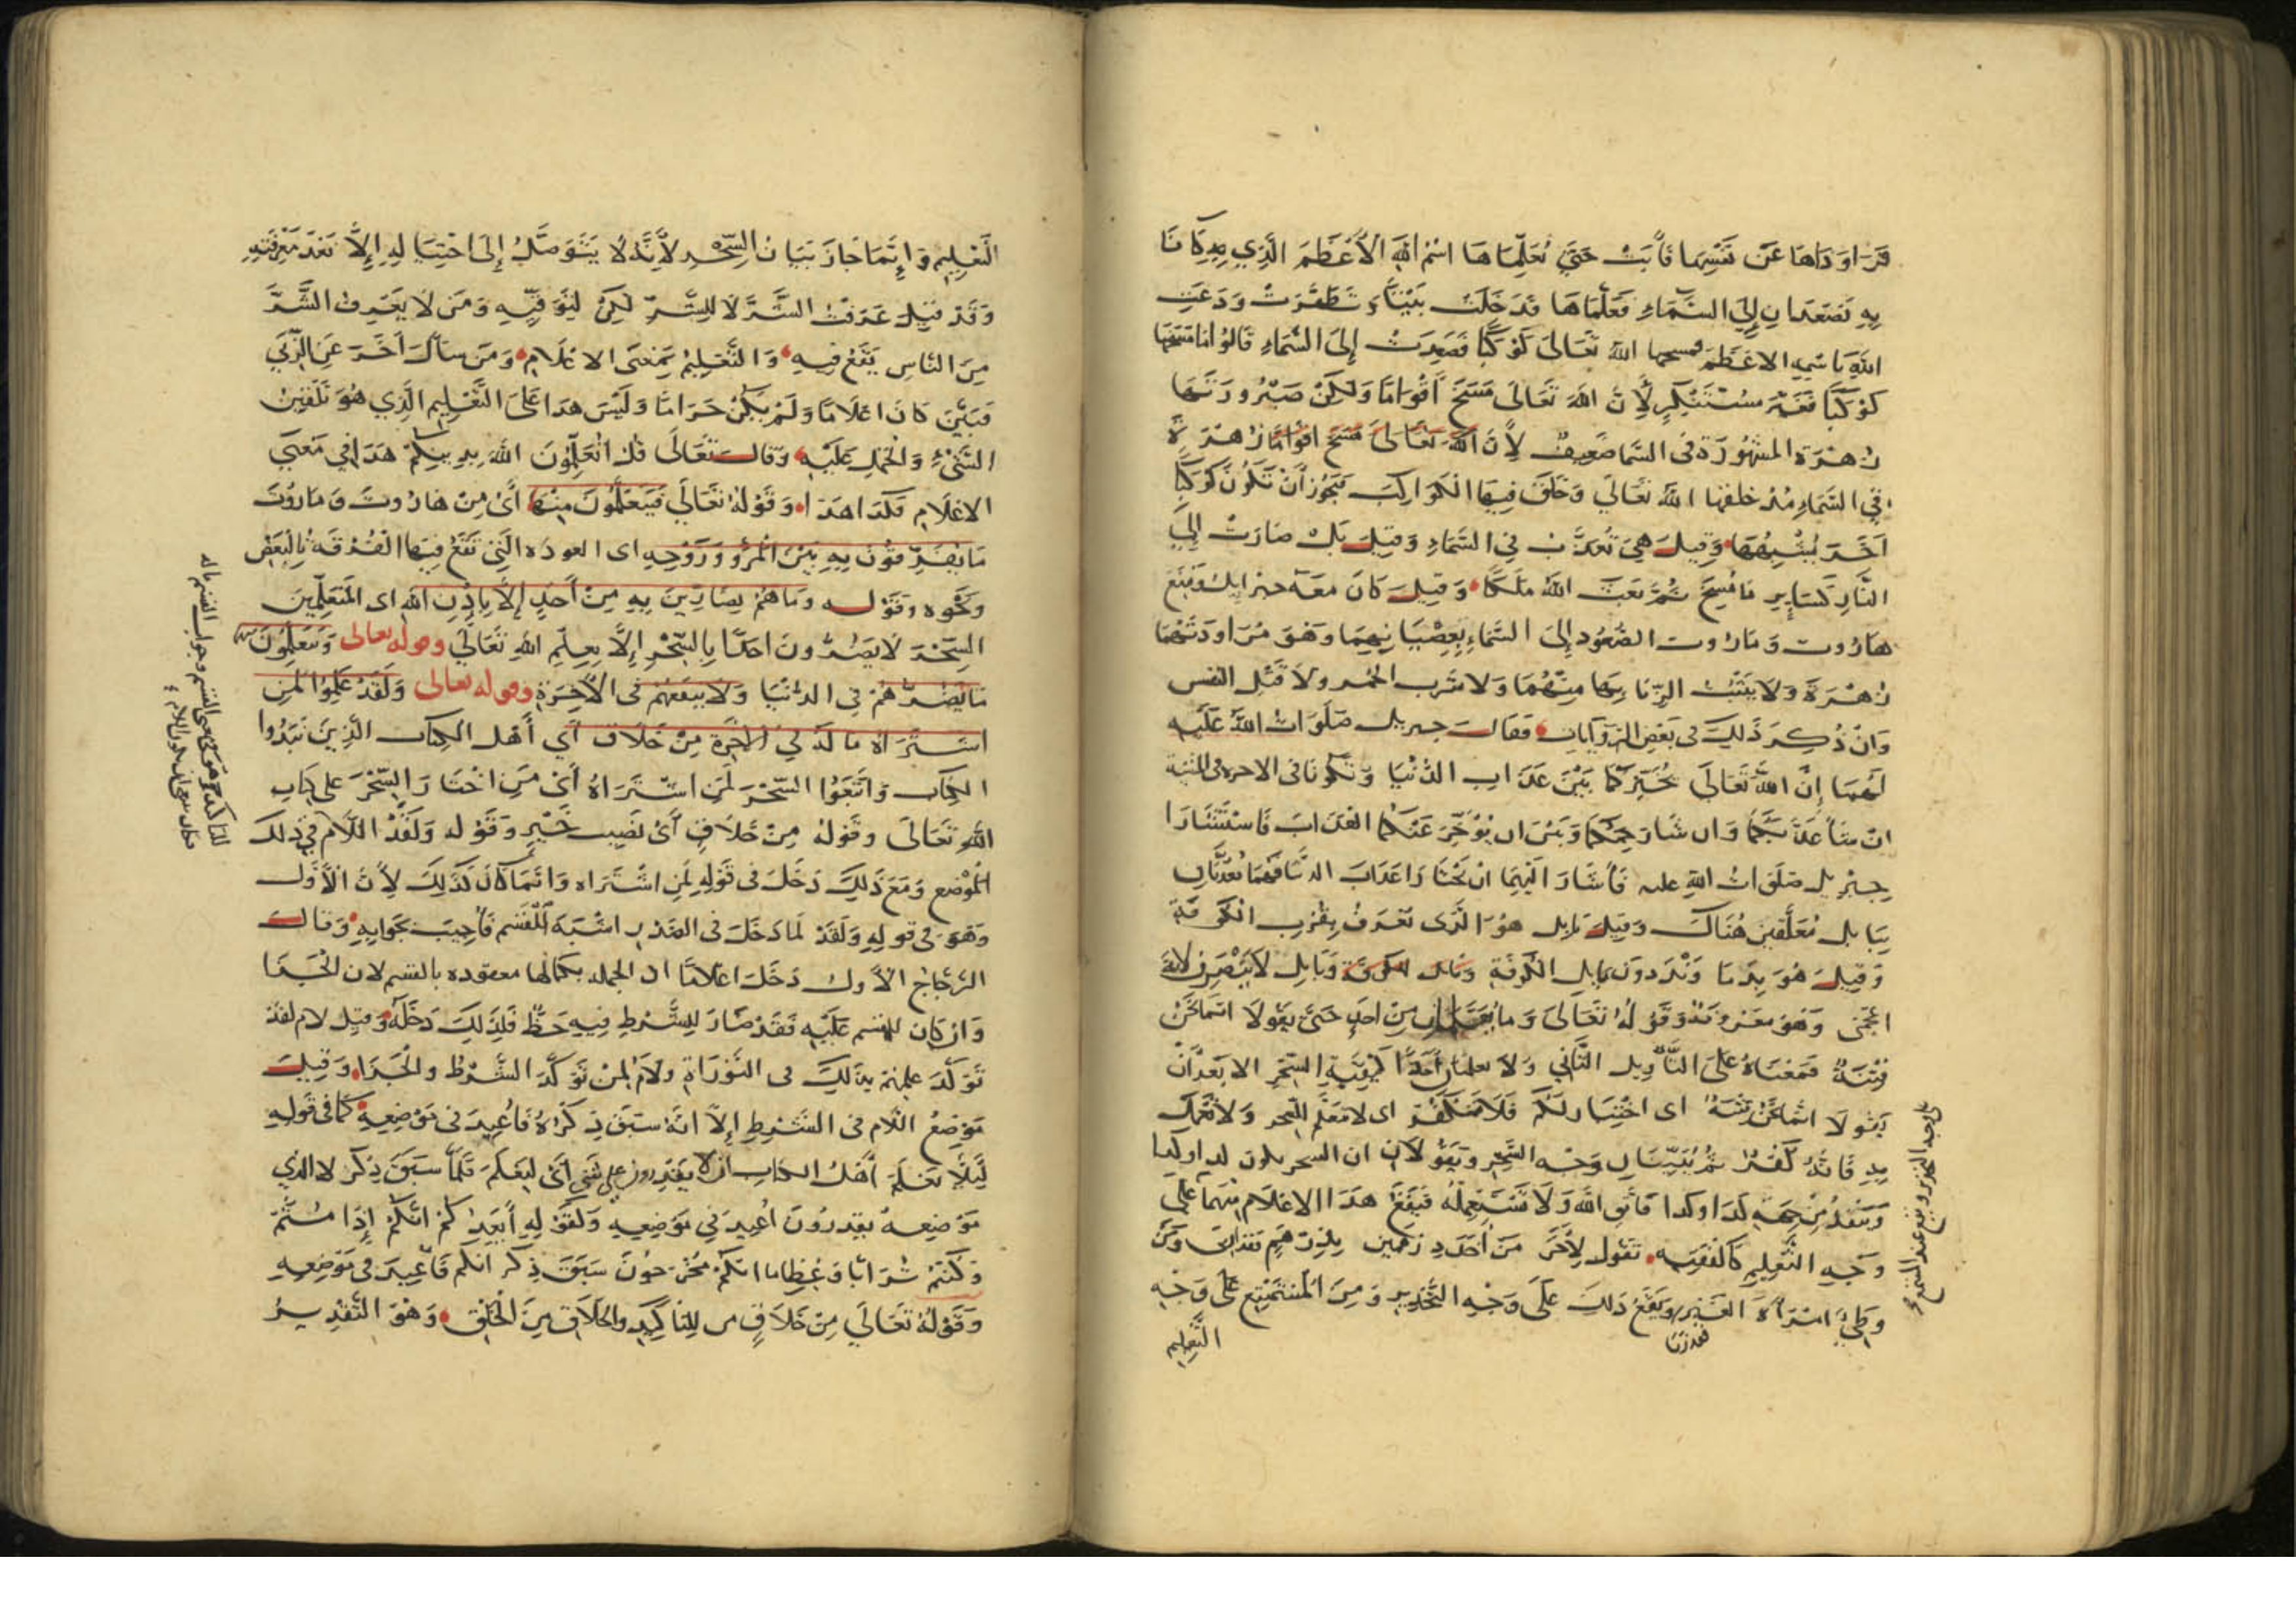 فراوداها عن نفسها فأبت حتى تعلماها اسم الله الأعظم الذي به كانا
به تصعدان إلى السماء فعلماها فدخلت بيتا وتطهرت ودعت
الله باسمه الاعظم فمسحها الله تعالى كوكبا فصعدت إلى السماء قالوا اما مسخها
كوكبا فغير مستنكر لأن الله تعالى مسخ أقواما ولكن صيرورتها
زهرة المشهورة فى السما ضعيف لأن الله تعالى مسخ اقواما زهرة
في السماء منذ خلقها الله تعالى وخلق فيها الكواكب فيجوز أن تكون كوكبا
آخر يشبهها وقيل هي تعذب في السماء وقيل بل صارت إلى
النار كساير ما مسخ ثم بعث الله ملكا وقيل كان معه جبرايل ومنع
هاروت وماروت الصعود إلى السماء بعصيانهما وهو مراودتهما
زهرة ولا يثبت الزنا بها منهما ولا شرب الخمر ولا قتل النفس
وان ذكر ذلك فى بعض الروآيات فقال جبريل صلوات الله عليه
لهما إن الله تعالى يخيركما بين عذاب الدنيا وتكونا فى الاخرة فى المشية
ان شا عذبكما وان شا رحمكما وبين ان يؤخر عنكما العذاب فاستشارا
جبريل صلوات الله عليه فأشار اليهما ان يختارا عذاب الدنيا فهما يعذبان
ببابل معلقين هناك وقيل بابل هو الذى تعرف بقرب الكوفة
وقيل هو بدما وندردون بابل الكوفة وبابل الكوفة وبابل لا ينصرف لانه
اعجمى وهو معرفة وقوله تعالى وما يعلمان من احد حتى يقولا انما نحن
فتنة فمعناه على التأويل الثاني ولا يعلمان أحدا كيفية السحر الا بعد أن
يقولا انما نحن فتنة اى اختبار لكم فلا تكفر اى لا تتعلم السحر ولا تعمل
به فانه كفر ثم يبيان وجه السحر ويقولان ان السحر يكون كذا وكذا
وينفذ من جهة كذا وكذا فاتق الله ولا تستعمله فيقع هذا الاعلام منهما على
وجه التعليم كالفقيه تقول لآخر من أخذ درهمين بدرهم فقد اربى ومن
وطئ امرأة الغير فقد زنا ويقع ذلك على وجه التحذير ومن المستمع على وجه
التعليم
على وجه التحذير ويقع عند المستمع
التعليم وإنما جاز بيان السحر لأنه لا يتوصل إلى اجتنابه إلا بعد معرفته
وقد قيل عرفت الشر لا للشر لكن لتوقيه ومن لا يعرف الشر
من الناس يقع فيه والتعليم بمعنى الاعلام ومن سأل آخر عن الزنى
فبين كان اعلاما ولم يكن حراما وليس هذا على التعليم الذي هو تلقين
الشيء والحمل عليه وقال تعالى قل اتعلمون الله بدينكم هذا في معنى
الاعلام فكذا هذا وقوله تعالى فيتعلمون منهما أى من هاروت وماروت
ما يفرقون به بين المرؤ وزوجه اى العوذه التى تقع فيها الفرقة بالبغض
ونحوه وقوله وما هم بضارين به من أحد إلا بإذن الله اى المتعلمين
السحر لا يضرون احدا بالسحر إلا بعلم الله تعالى وقوله تعالى ويتعلمون
ما يضرهم في الدنيا ولا ينفعهم فى الآخرة وقوله تعالى ولقد علموا لمن
اشتراه ما له في الآخرة من خلاق أي أهل الكتاب الذين نبذوا
الكتاب واتبعوا السحر لمن اشتراه أى من اختار السحر على كتاب
الله تعالى وقوله من خلاق أي نصيب خير وقوله ولقد اللام في ذلك
الموضع ومع ذلك دخل فى قوله لمن اشتراه وانما كان كذلك لأن الأول
وهو فى قوله ولقد لما دخل فى القدر اشبه القسم فأجيب بجوابه وقال
الزجاج الأول دخل اعلاما ان الجملة بكمالها معقودة بالقسم لان الجزا
وان كان للقسم عليه فقد صار للشرط فيه حظ فلذلك دخله وقيل لام لقد
توكد علمهم بذلك فى التوراة ولام لمن توكد الشرط والجزا وقيل
موضع اللام فى الشرط إلا انه سبق ذكره فأعيد فى موضعه كما فى قوله
ليلا يعلم أهل الكتاب ان لا يقدرون على شي أى ليعلم فلما سبق ذكر لا الذي
موضعه يقدرون اعيد في موضعه ولقوله أيعدكم انكم إذا متم
وكنتم ترابا وعظاما انكم مخرجون سبق ذكر انكم فأعيد فى موضعه
وقوله تعالى من خلاق من للتاكيد والخلاق من الخلق وهو التقدير